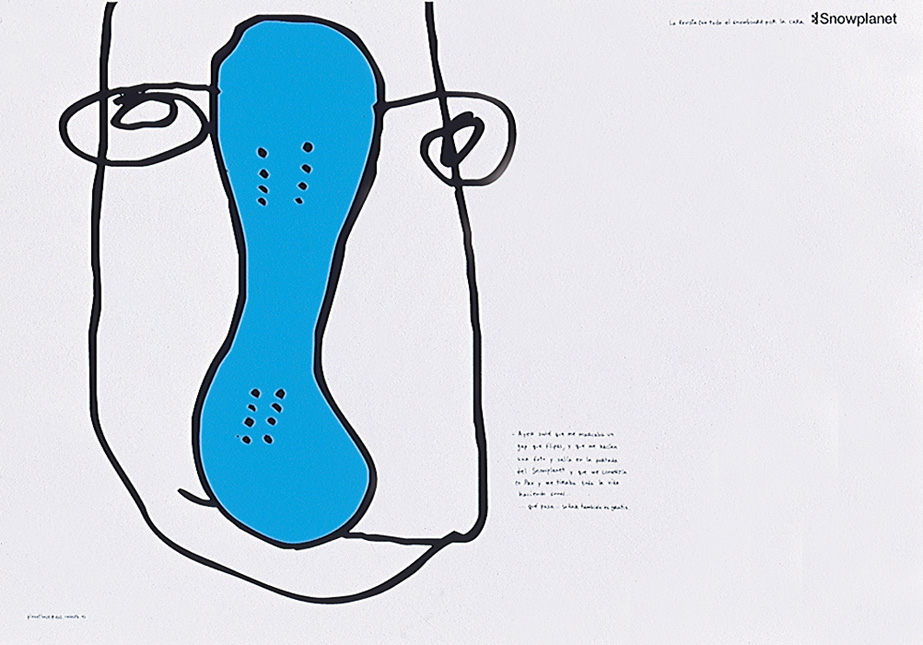 La revista con todo el snowboard por la cara. Snowplanet
- Ayer soñé que me marcaba un
gap que flipas, y que me hacían
una foto y salía en la portada
del Snowplanet y que me convertía
en Pro y me tiraba toda la vida
haciendo
qué pasa... soñar también es gratis.